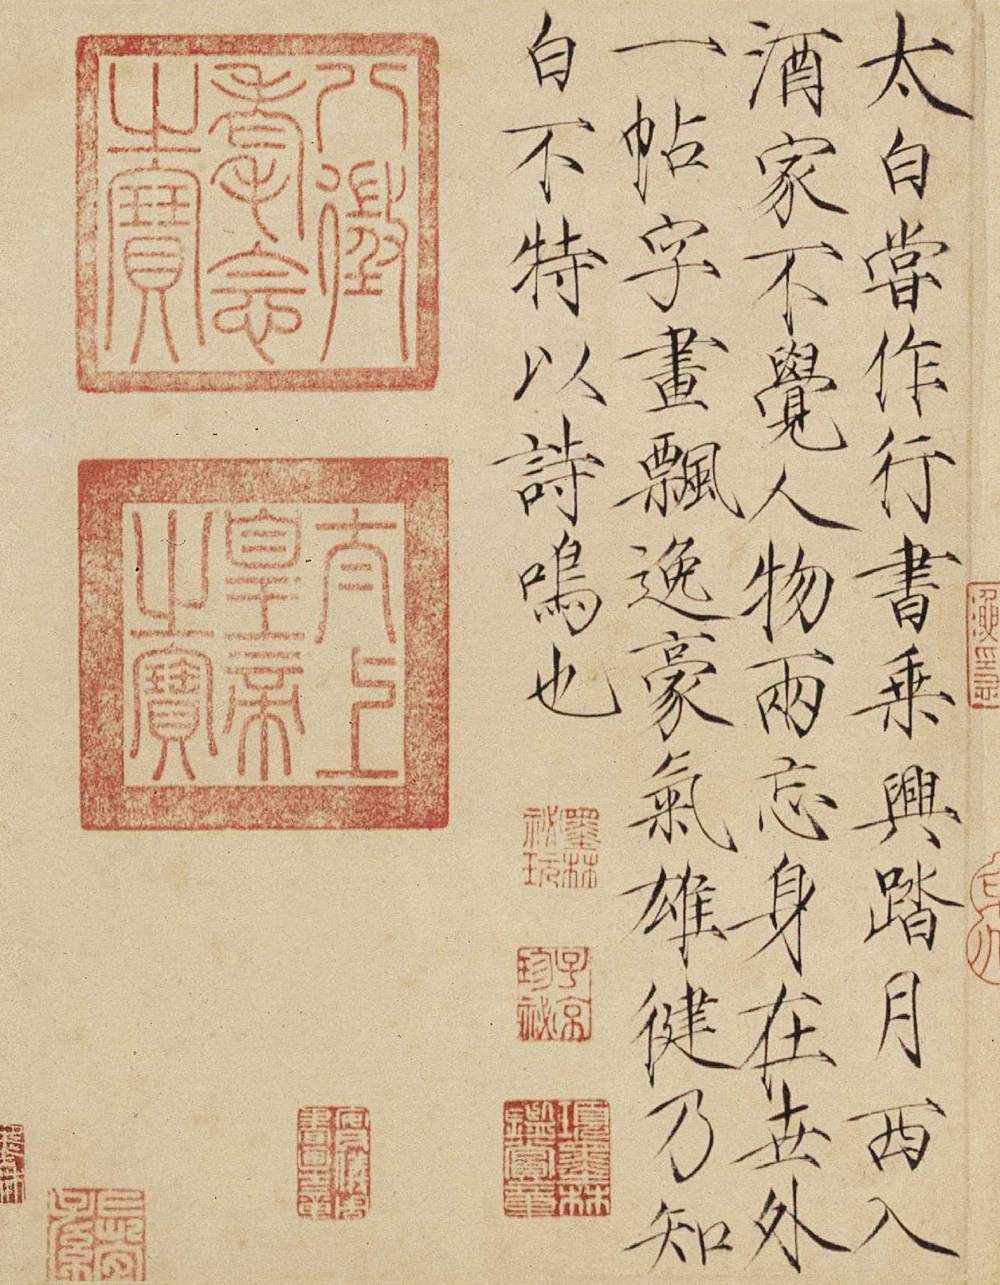 太白嘗作行書乘興踏月西入
酒家不覺人物兩忘身在世外
一帖字畫飄逸豪氣雄健乃知
白不特以詩鳴也
墨林祕玩
子京珍祕
項墨林鑑賞章
八徵耄念之寶
太上皇帝之寶
安氏儀周書畫之章